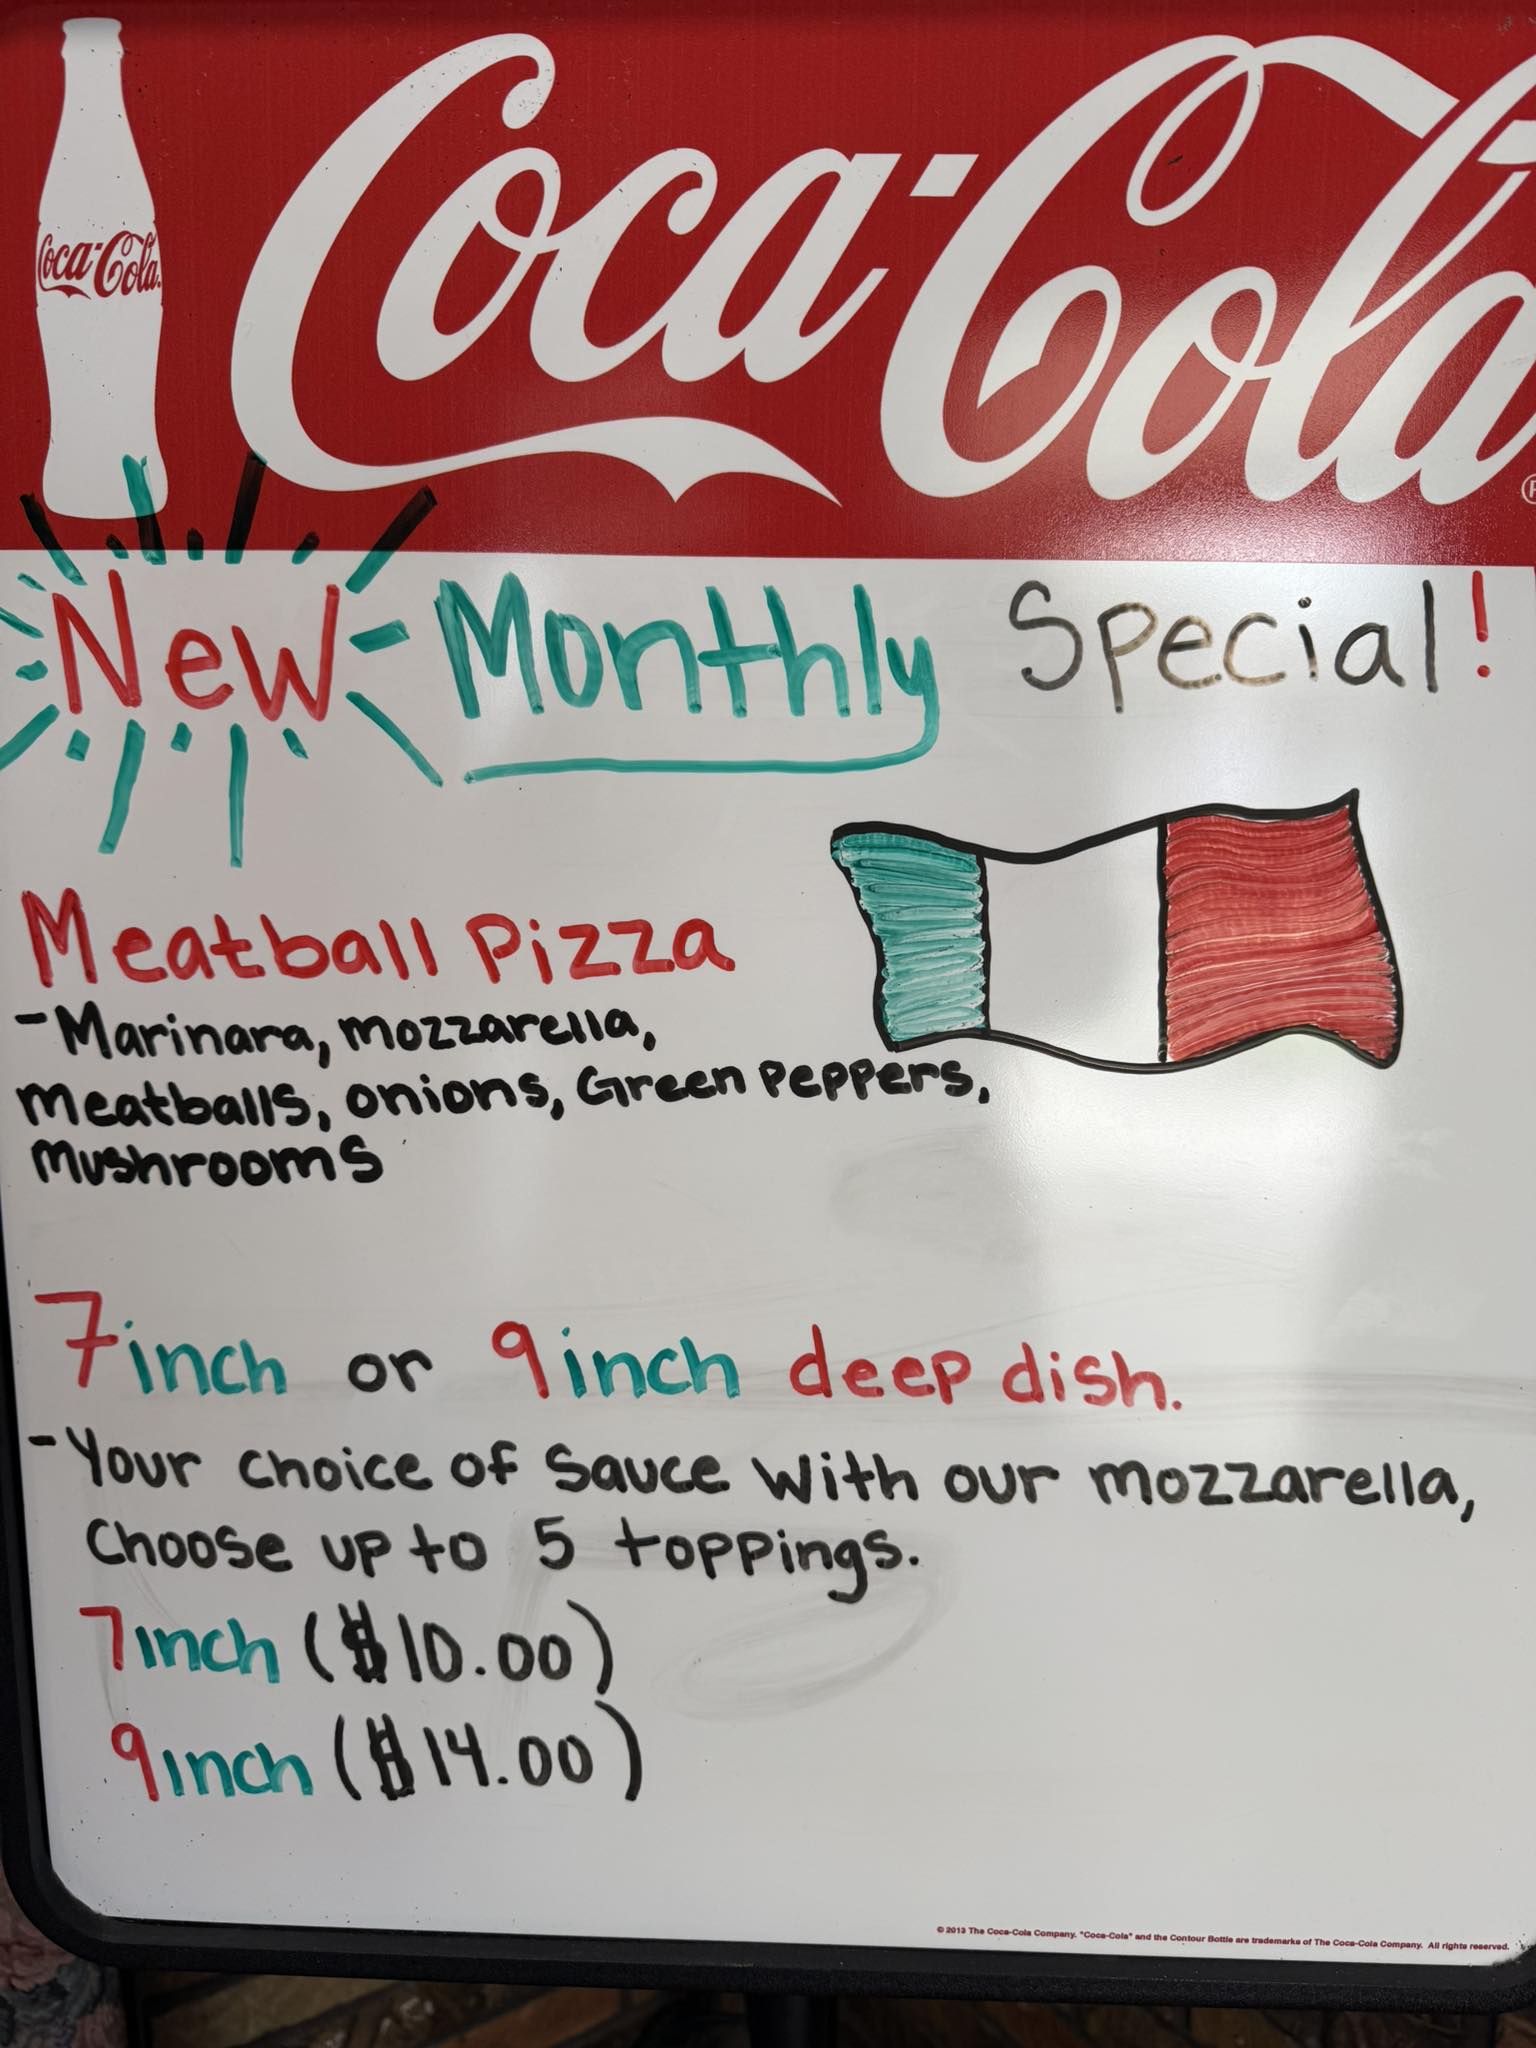 Coca-Cola
Coca-Cola®
New Monthly Special!
Meatball Pizza
-Marinara, mozzarella,
meatballs, onions, Green Peppers,
Mushrooms
7inch or 9inch deep dish.
-Your choice of Sauce With our mozzarella,
Choose up to 5 toppings.
7inch ($10.00)
9inch ($14.00)
© 2013 The Coca-Cola Company. "Coca-Cola" and the Contour Bottle are trademarks of The Coca-Cola Company. All rights reserved.